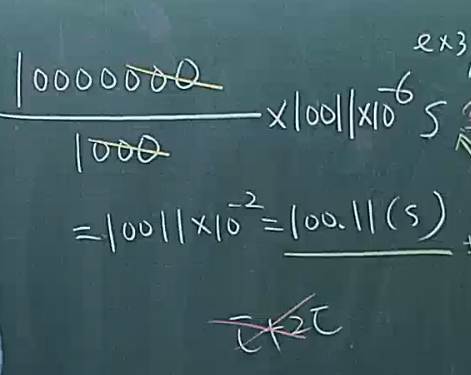 ex3
10000000
1000
×10011×10⁻⁶ S
=10011×10⁻²=100.11(s)
τ+2τ